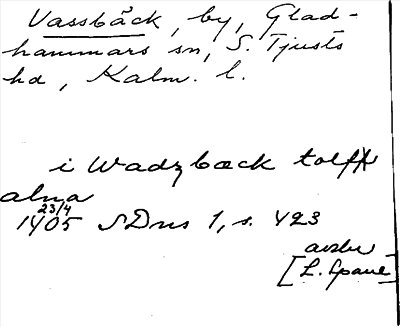 Vassbäck, by, Glad-
hammars sn, S. Tjusts
hd, Kalm. l.
i Wadzbæck tolff
alna
23/4
1405 SDns 1, s. 423
avskr
[L. Spare]